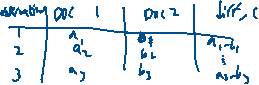 DOC 1 DOC 2 diff, c
1 a₁ b₁ a₁-b₁
2 a₂ b₂ ⋮
3 a₃ b₃ a₃-b₃